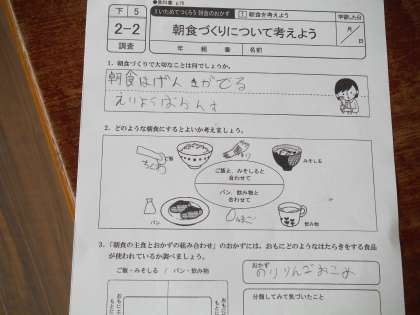 教科書 p.15
下 5
2-2
調査
1 いためてつくろう 朝食のおかず
1 朝食を考えよう
学習した日
月 日
朝食づくりについて考えよう
年 組 番 名前
1. 朝食づくりで大切なことは何でしょうか。
朝食はげんきがでる
えいようばらんす
2. どのような朝食にするとよいか考えましょう。
ご飯
みそしる
ご飯と、みそしると
合わせて
パン、飲み物と
合わせて
パン
りんご
飲み物
3.「朝食の主食とおかずの組み合わせ」のおかずには、おもにどのようなはたらきをする食品
が使われているか調べましょう。
ご飯・みそしる / パン・飲み物
おかず
のりりんごおこめ
分類してみて気づいたこと